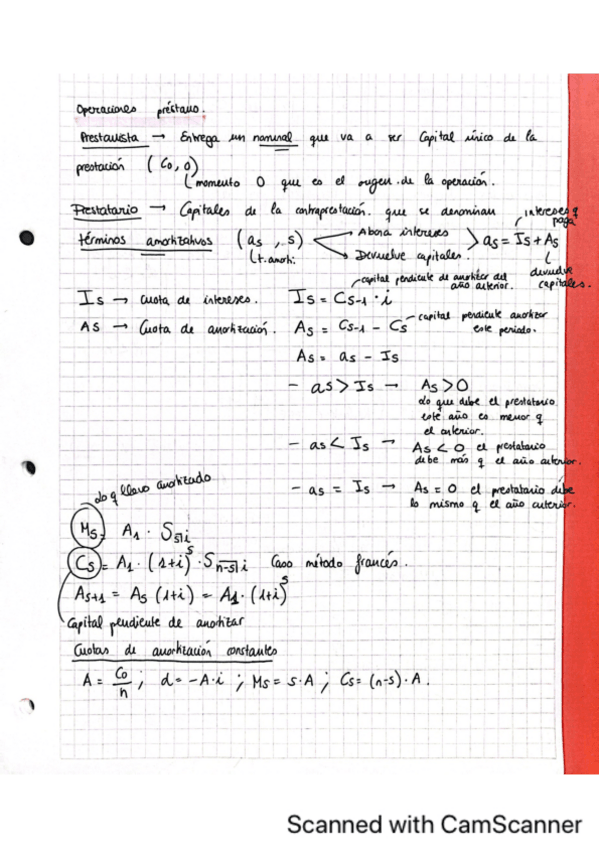 Operaciones préstamo.
Prestamista → Entrega un nominal que va a ser Capital único de la
prestación (C₀, 0)
momento 0 que es el origen de la operación.
Prestatario → Capitales de la contraprestación. que se denominan
términos amortizativos (as, s)
t. amorti.
Abona intereses
Devuelve capitales.
as = Is + As
intereses q paga
devuelve capitales.
Is → Cuota de intereses. Is = Cs-1 · i
capital pendiente de amortizar del año anterior.
As → Cuota de amortización. As = Cs-1 - Cs
capital pendiente amortizar este periodo.
As = as - Is
- as > Is → As > 0
lo que debe el prestatario
este año es menor q
el anterior.
- as < Is → As < 0 el prestatario
debe más q el año anterior.
- as = Is → As = 0 el prestatario debe
lo mismo q el año anterior.
lo q llevo amortizado
Ms = A₁ · S s┐i
Cs = A₁ · (1+i)^s · S n-s┐i Caso método francés.
As+1 = As (1+i) = A₁ · (1+i)^s
Capital pendiente de amortizar
Cuotas de amortización constantes
A = C₀/n ; d = -A·i ; Ms = s·A ; Cs = (n-s)·A.
Scanned with CamScanner